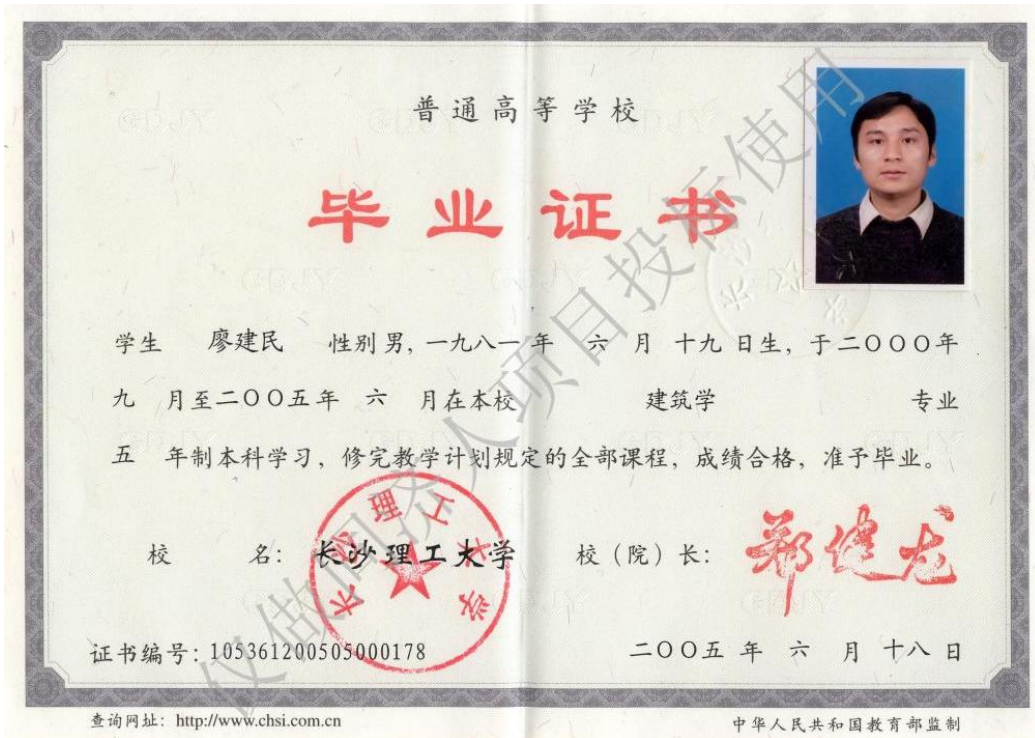 普通高等学校
毕业证书
学生 廖建民 性别 男, 一九八一 年 六 月 十九 日生, 于二〇〇〇年
九 月至二〇〇五年 六 月在本校 建筑学 专业
五 年制本科学习, 修完教学计划规定的全部课程, 成绩合格, 准予毕业。
校 名: 长沙理工大学 校(院)长: 郑健龙
长沙理工大学
证书编号: 105361200505000178 二〇〇五 年 六 月 十八 日
查询网址: http://www.chsi.com.cn 中华人民共和国教育部监制